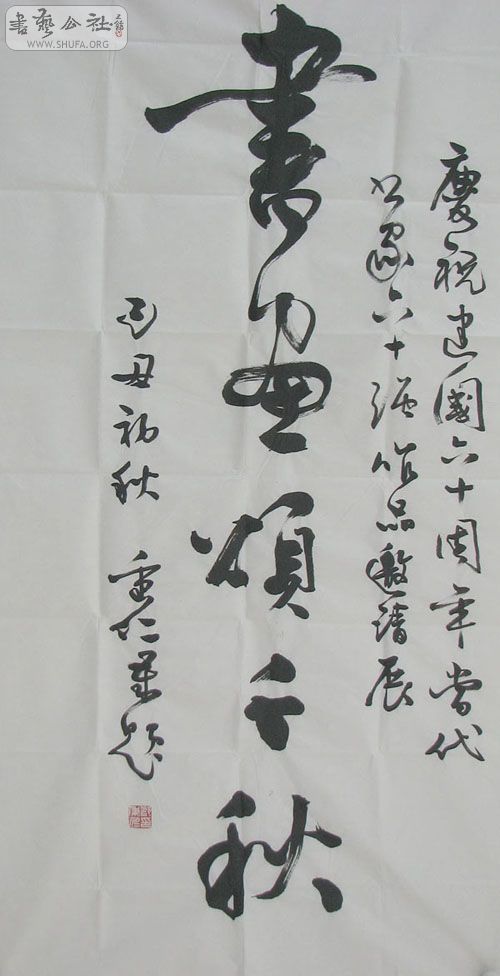 書藝公社
WWW.SHUFA.ORG
慶祝建國六十周年當代
书家六十强作品邀請展
書畫頌千秋
己丑初秋 仁題